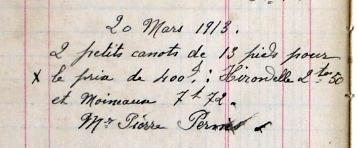 20 Mars 1913.
2 petits canots de 13 pieds pour
x le prix de 400f. : Hirondelle 2tx50
et Moineaux 7t72.
Mr Pierre